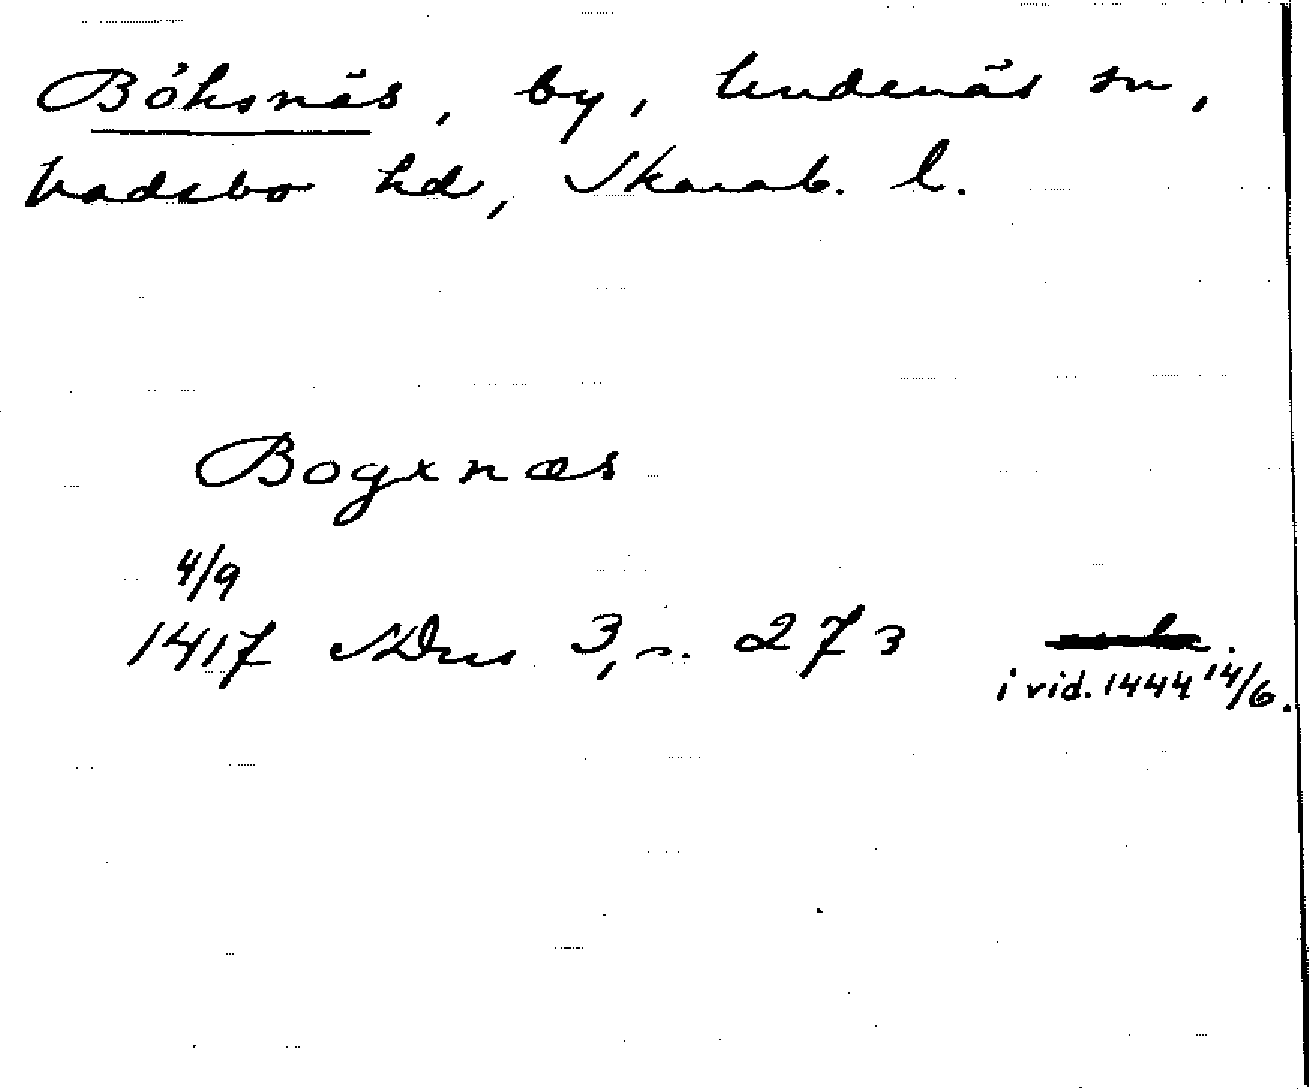 Bóksnäs, by, Undenäs sn,
Vadsbo hd, Skarab. l.
Bogxnæs
4/9
1417 SDns 3, s. 273
i vid. 1444 14/6.